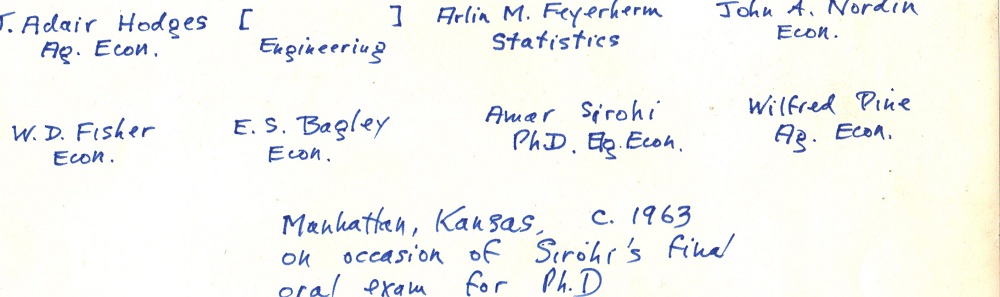 J. Adair Hodges [ ] Arlin M. Feyerherm John A. Nordin
Ag. Econ. Engineering Statistics Econ.
W. D. Fisher E. S. Bagley Amar Sirohi Wilfred Pine
Econ. Econ. Ph.D. Ag. Econ. Ag. Econ.
Manhattan, Kansas, c. 1963
on occasion of Sirohi's final
oral exam for Ph.D